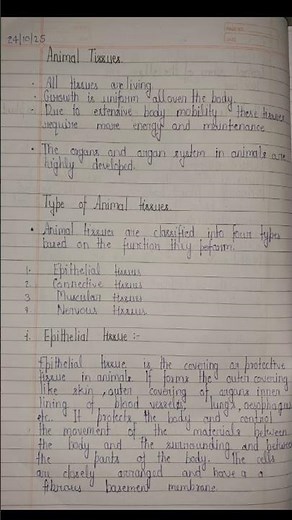 24/10/25
Animal Tissues
• All tissues are living
• Growth is uniform all over the body.
• Due to extensive body mobility these tissues
require more energy and maintenance
• The organs and organ system in animals are
highly developed.
Type of Animal tissues
• Animal tissues are classified into four types
based on the function they peform.
1. Epithelial tissue
2. Connective tissue
3. Muscular tissue
4. Nervous tissue
1. Epithelial tissue :-
Epithelial tissue is the covering or protective
tissue in animals. It forms the outer covering
like skin, outer covering of organs inner
lining of blood vessels, lungs, oesophagus
etc. It protects the body and control
the movement of the materials between
the body and the surrounding and between
the parts of the body. The cells
are closely arranged and have a
fibrous basement membrane.